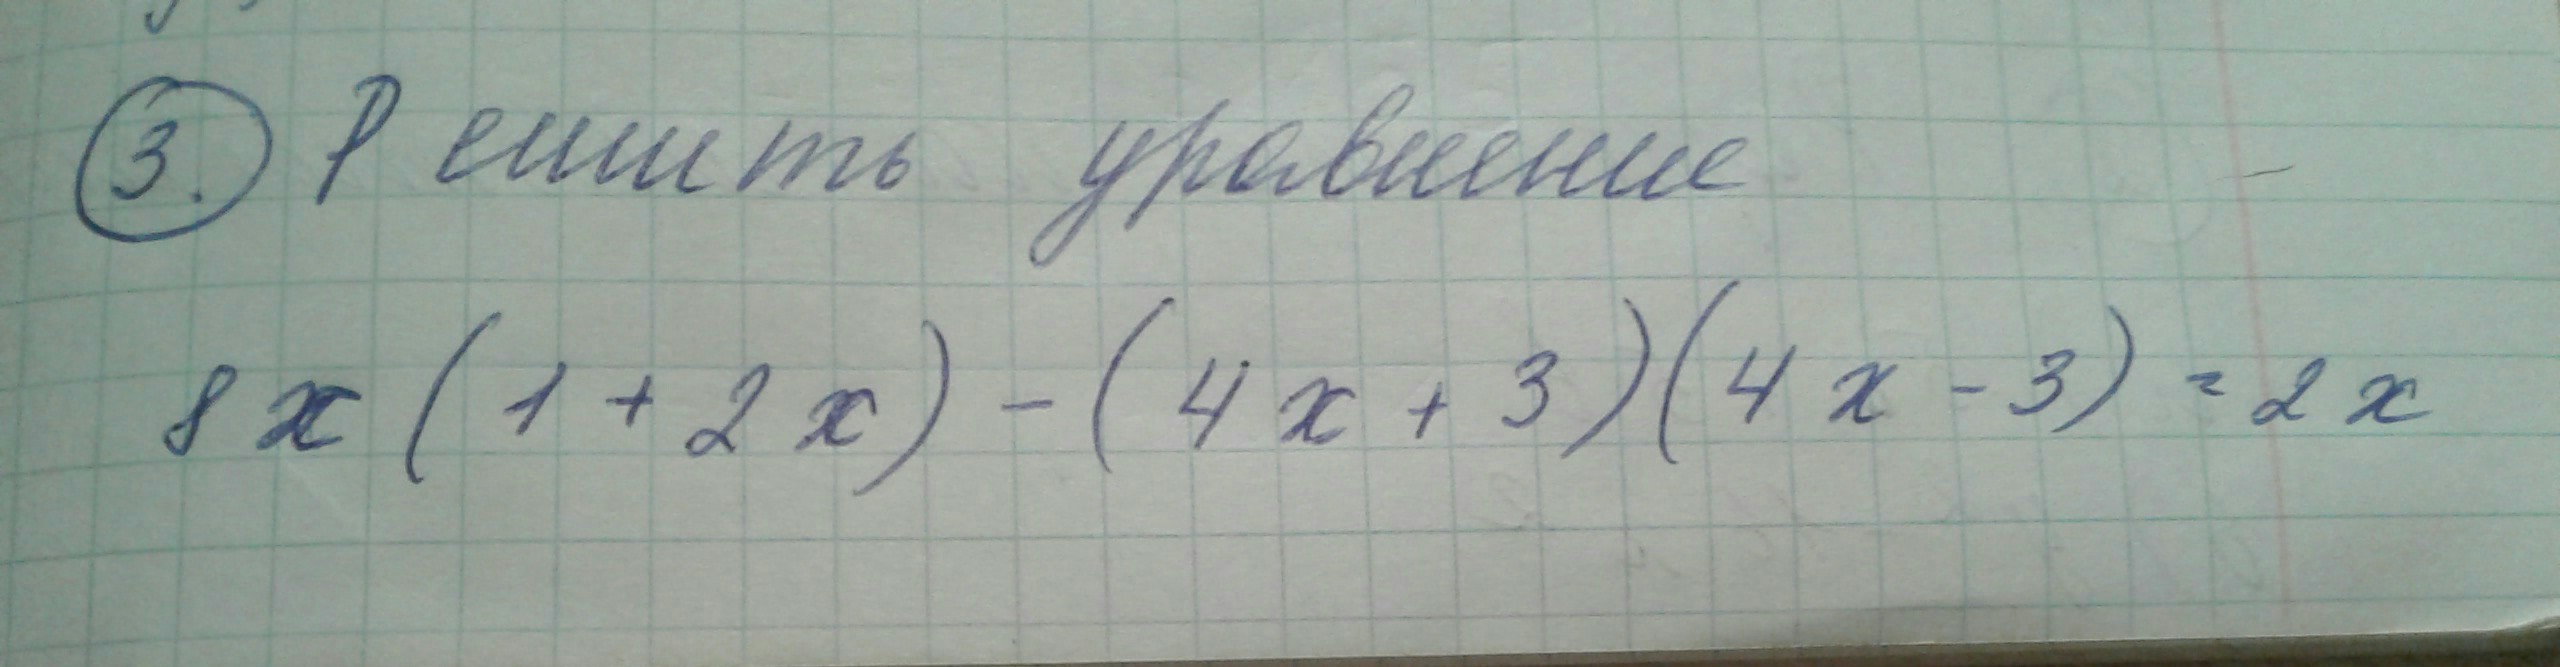 3. Решить уравнение
8x(1+2x)-(4x+3)(4x-3)=2x